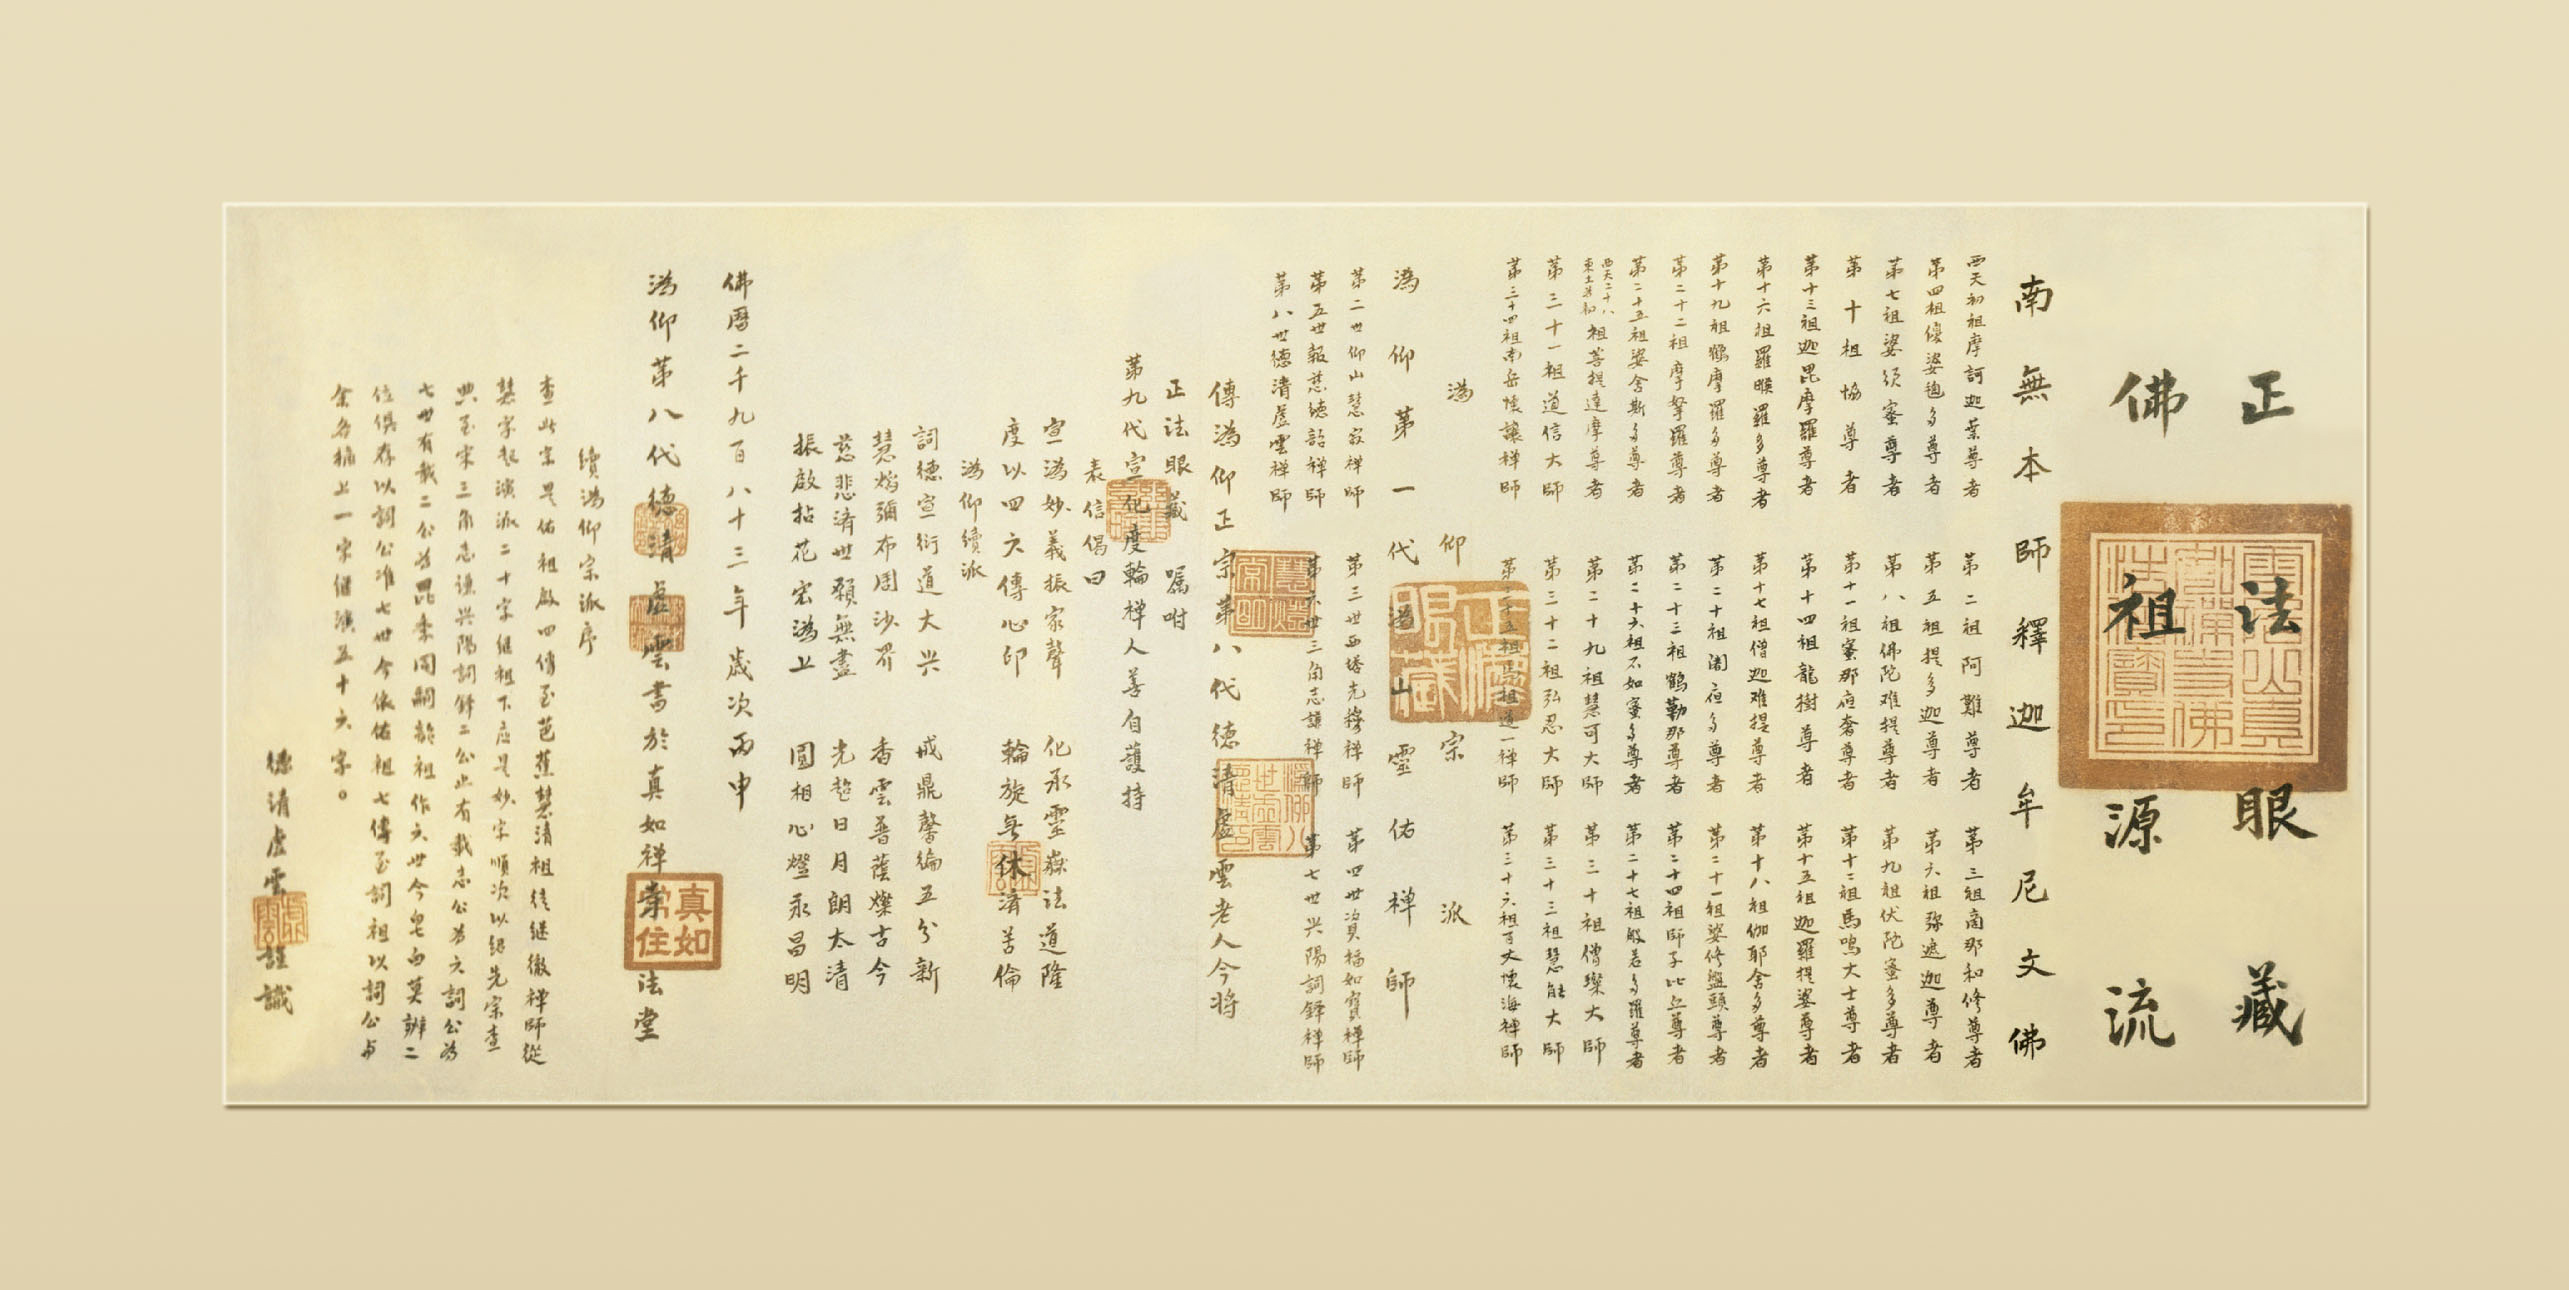 正法眼藏
佛祖源流
南無本師釋迦牟尼文佛
西天初祖摩訶迦葉尊者 第二祖阿難尊者 第三祖商那和修尊者
第四祖優婆毱多尊者 第五祖提多迦尊者 第六祖弥遮迦尊者
第七祖婆須蜜尊者 第八祖佛陀难提尊者 第九祖伏陀蜜多尊者
第十祖協尊者 第十一祖富那夜奢尊者 第十二祖馬鳴大士尊者
第十三祖迦毘摩羅尊者 第十四祖龍樹尊者 第十五祖迦羅提婆尊者
第十六祖羅睺羅多尊者 第十七祖僧迦难提尊者 第十八祖伽耶舍多尊者
第十九祖鳩摩羅多尊者 第二十祖闍夜多尊者 第二十一祖婆修盤頭尊者
第二十二祖摩拏羅尊者 第二十三祖鶴勒那尊者 第二十四祖師子比丘尊者
第二十五祖婆舍斯多尊者 第二十六祖不如蜜多尊者 第二十七祖般若多羅尊者
西天二十八東土為初祖菩提達摩尊者 第二十九祖慧可大師 第三十祖僧璨大師
第三十一祖道信大師 第三十二祖弘忍大師 第三十三祖慧能大師
第三十四祖南岳懷讓禅師 第三十五祖馬祖道一禅師 第三十六祖百丈懷海禅師
溈仰宗派
溈仰第一代溈山靈佑禅師
第二世仰山慧寂禅師 第三世西塔光穆禅師 第四世資福如寶禅師
第五世報慈德韶禅師 第六世三角志謙禅師 第七世兴陽詞鐸禅師
第八世德清虛雲禅師
傳溈仰正宗第八代德清虛雲老人今将
正法眼藏嘱咐
第九代宣化度輪禅人善自護持
表信偈曰
宣溈妙義振家聲 化承靈嶽法道隆
度以四六傳心印 輪旋无休濟苦倫
溈仰續派
詞德宣衍道大兴 戒鼎馨徧五分新
慧焰彌布周沙界 香雲普蔭燦古今
慈悲濟世願無盡 光超日月朗太清
振啟拈花宏溈上 圓相心燈永昌明
佛曆二千九百八十三年歲次丙申
溈仰第八代德清虛雲書於真如禅寺法堂
真如常住
續溈仰宗派序
查此宗是佑祖啟四傳至芭蕉慧清祖徒继徹禅師從
慧字起演派二十字继祖下应是妙字順次以紹先宗查
典至宋三角志謙兴陽詞鐸二公止有載志公為六詞公為
七世有載二公為昆季同嗣韶祖作六世今皂白莫辨二
位俱存以詞公准七世今依佑祖七傳至詞祖以詞公与
余名摘上一字继演五十六字。
德清虛雲謹識